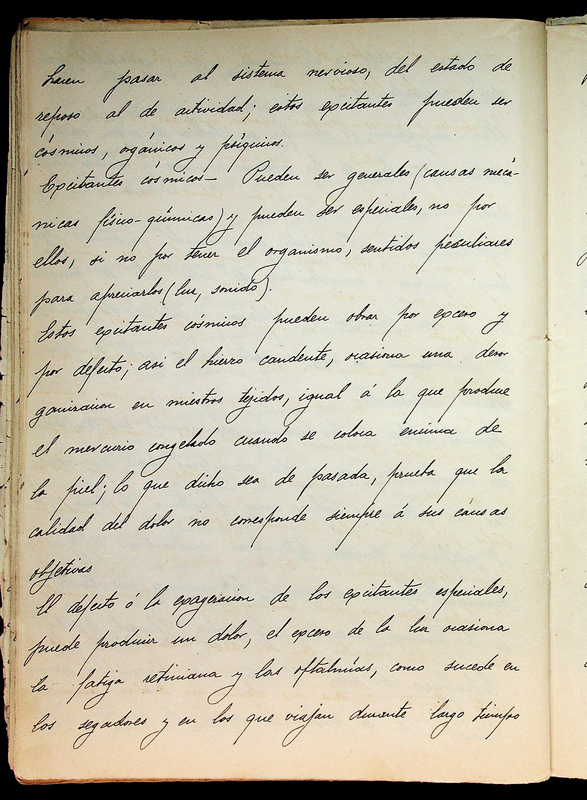 hacen pasar al sistema nervioso, del estado de
reposo al de actividad; estos excitantes pueden ser
cósmicos, orgánicos y psíquicos.
Excitantes cósmicos— Pueden ser generales (causas mecá-
nicas físico-químicas) y pueden ser especiales, no por
ellos, si no por tener el organismo, sentidos peculiares
para apreciarlos (luz, sonido).
Estos excitantes cósmicos pueden obrar por exceso y
por defecto; asi el hierro candente, ocasiona una desor
ganizacion en nuestros tejidos, igual á la que produce
el mercurio congelado cuando se coloca encima de
la piel; lo que dicho sea de pasada, prueba que la
calidad del dolor no corresponde siempre á sus causas
objetivas
El defecto ó la exageracion de los excitantes especiales,
puede producir un dolor, el exceso de la luz ocasiona
la fatiga retiniana y las oftalmías, como sucede en
los segadores y en los que viajan durante largo tiempo